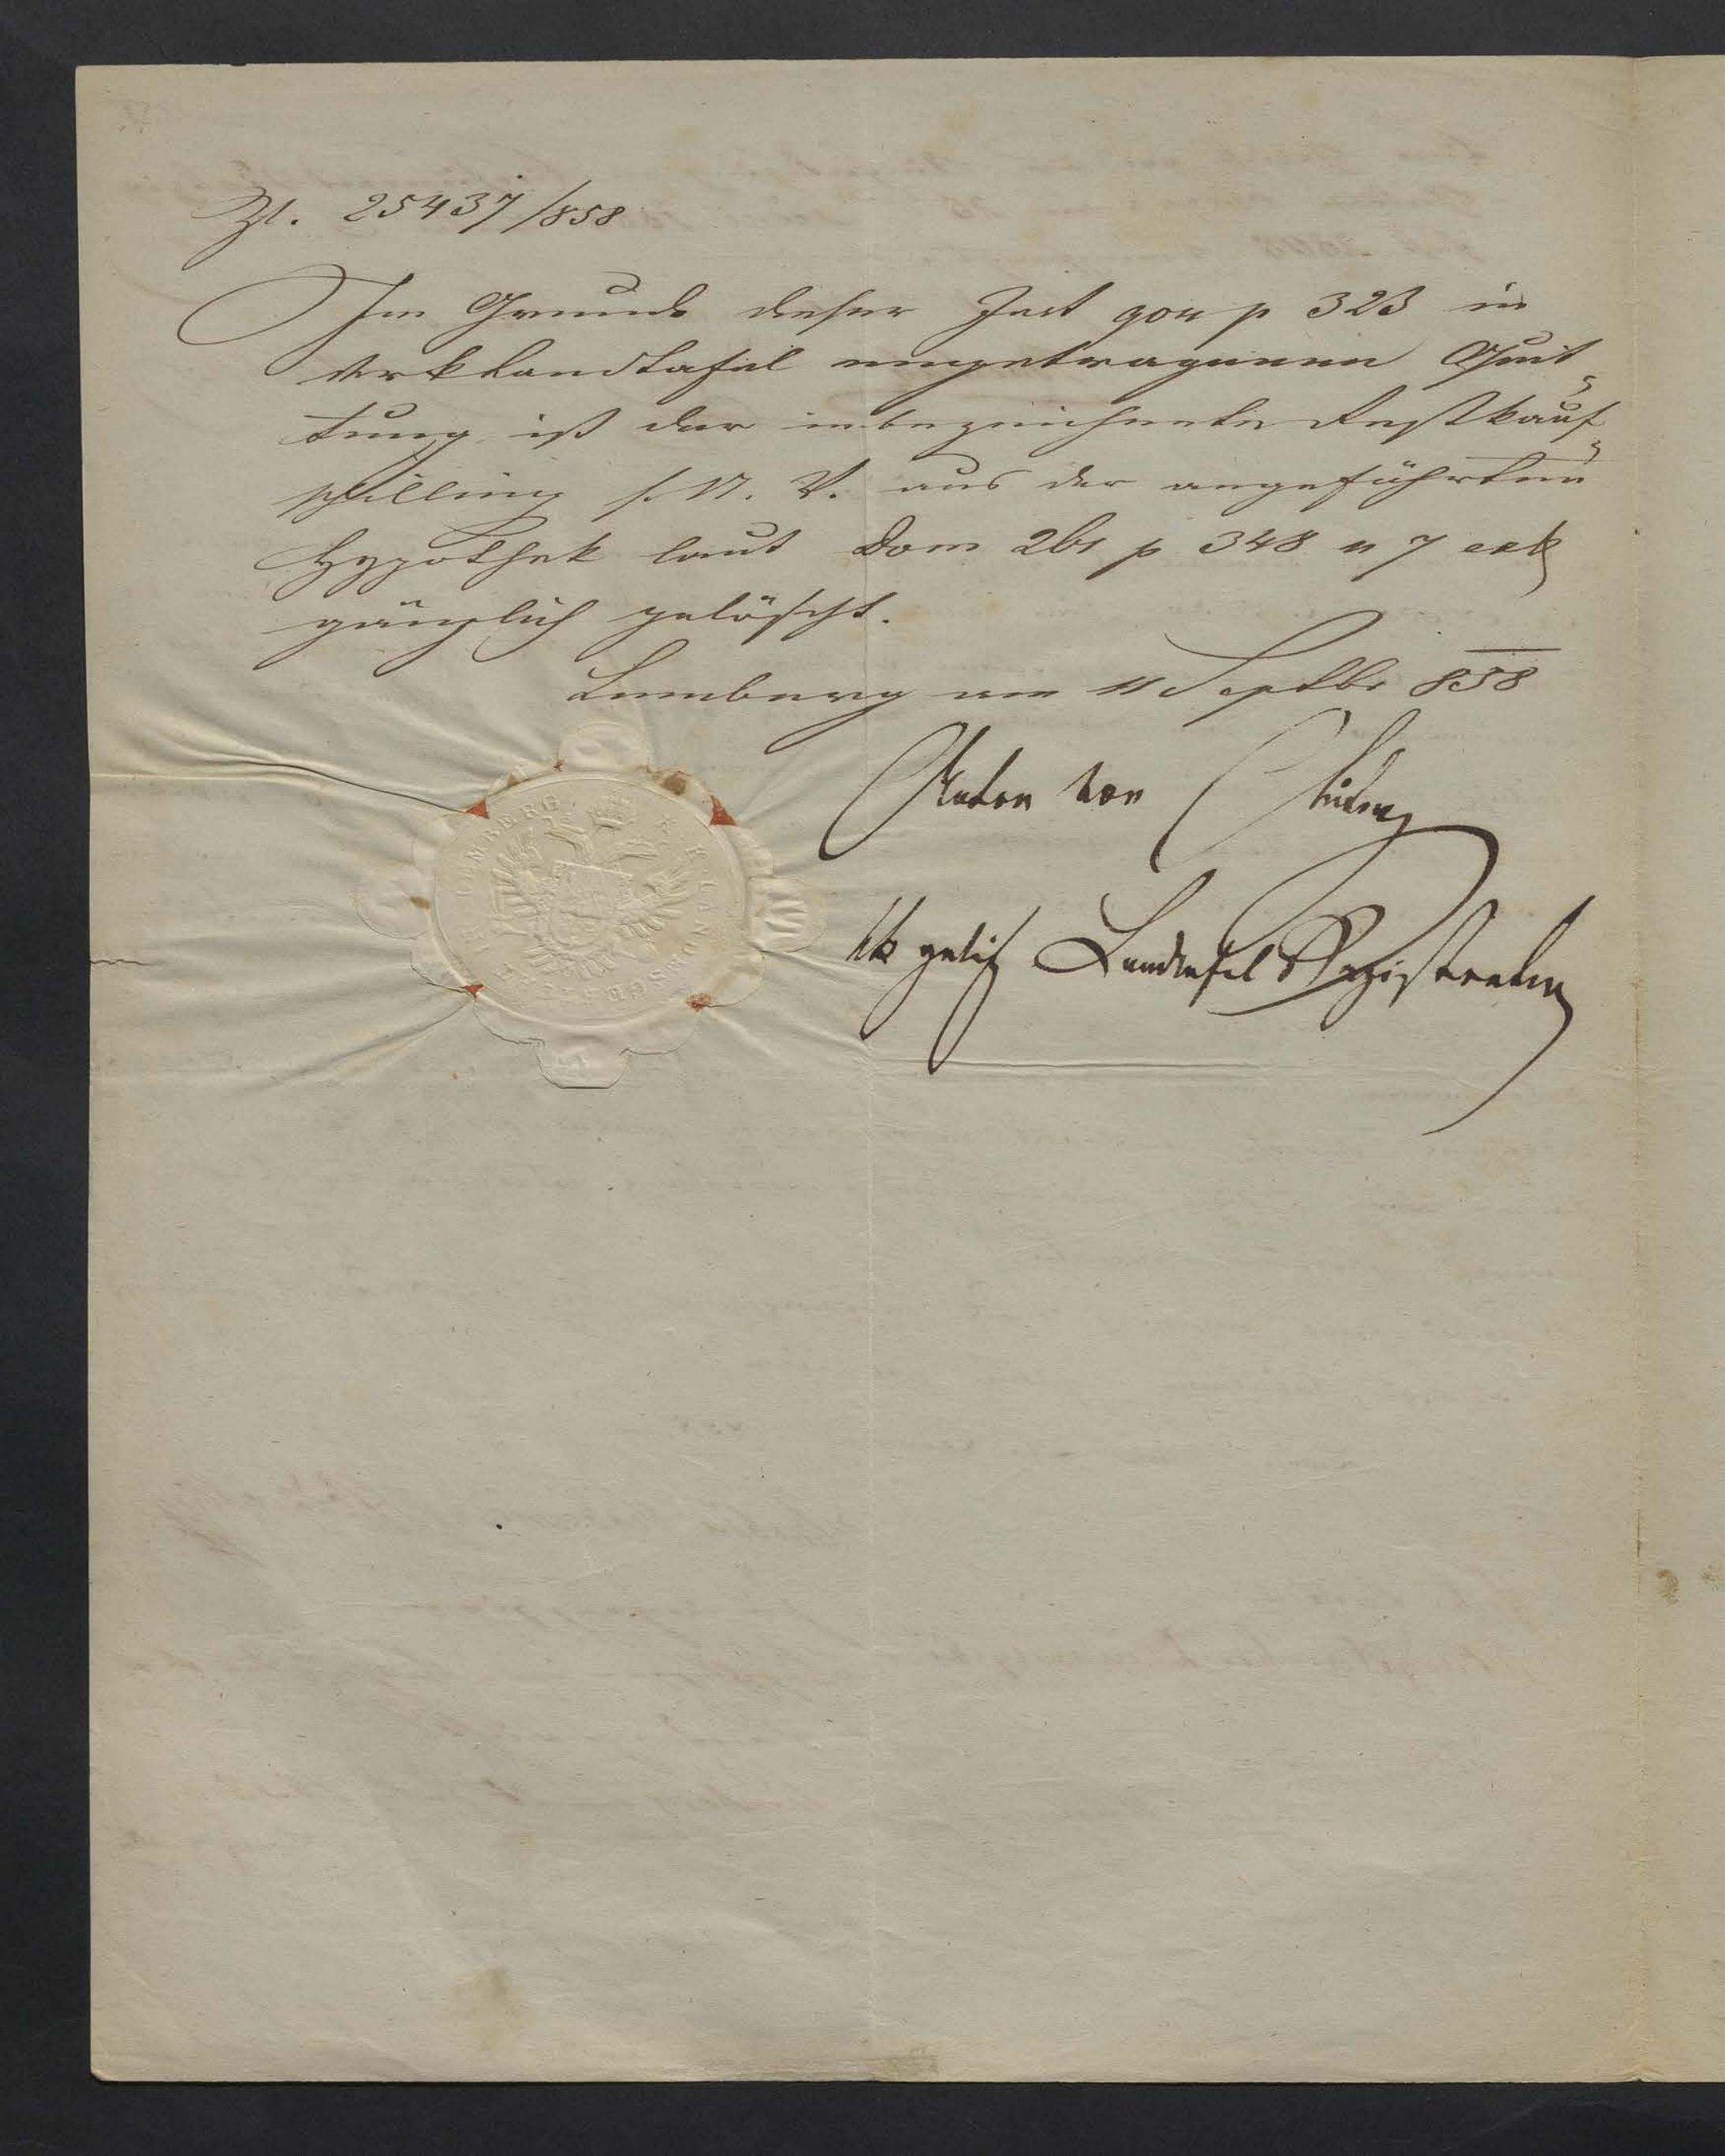 Zl. 25437/858
Im Grunde dieser Inst 904 p 323 in
der kk Landtafel eingetragenen Quit-
tung ist der inbezeichnete Restkauf-
schilling s. N. V. aus der angeführten
Hypothek laut Dom 261 p 348 n 7 ext
gänzlich gelöscht.
Lemberg am 11 Septbr 858
Anton von
kk galiz Landtafel Registrator
K. K. LANDESGERICHT LEMBERG